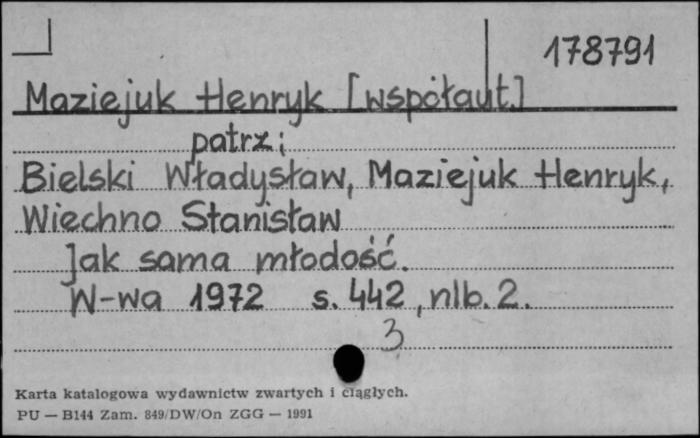 178791
Maziejuk Henryk [współaut.]
patrz:
Bielski Władysław, Maziejuk Henryk,
Wiechno Stanisław
Jak sama młodość.
W-wa 1972 s. 442, nlb. 2.
3
Karta katalogowa wydawnictw zwartych i ciągłych.
PU — B144 Zam. 849/DW/On ZGG — 1991